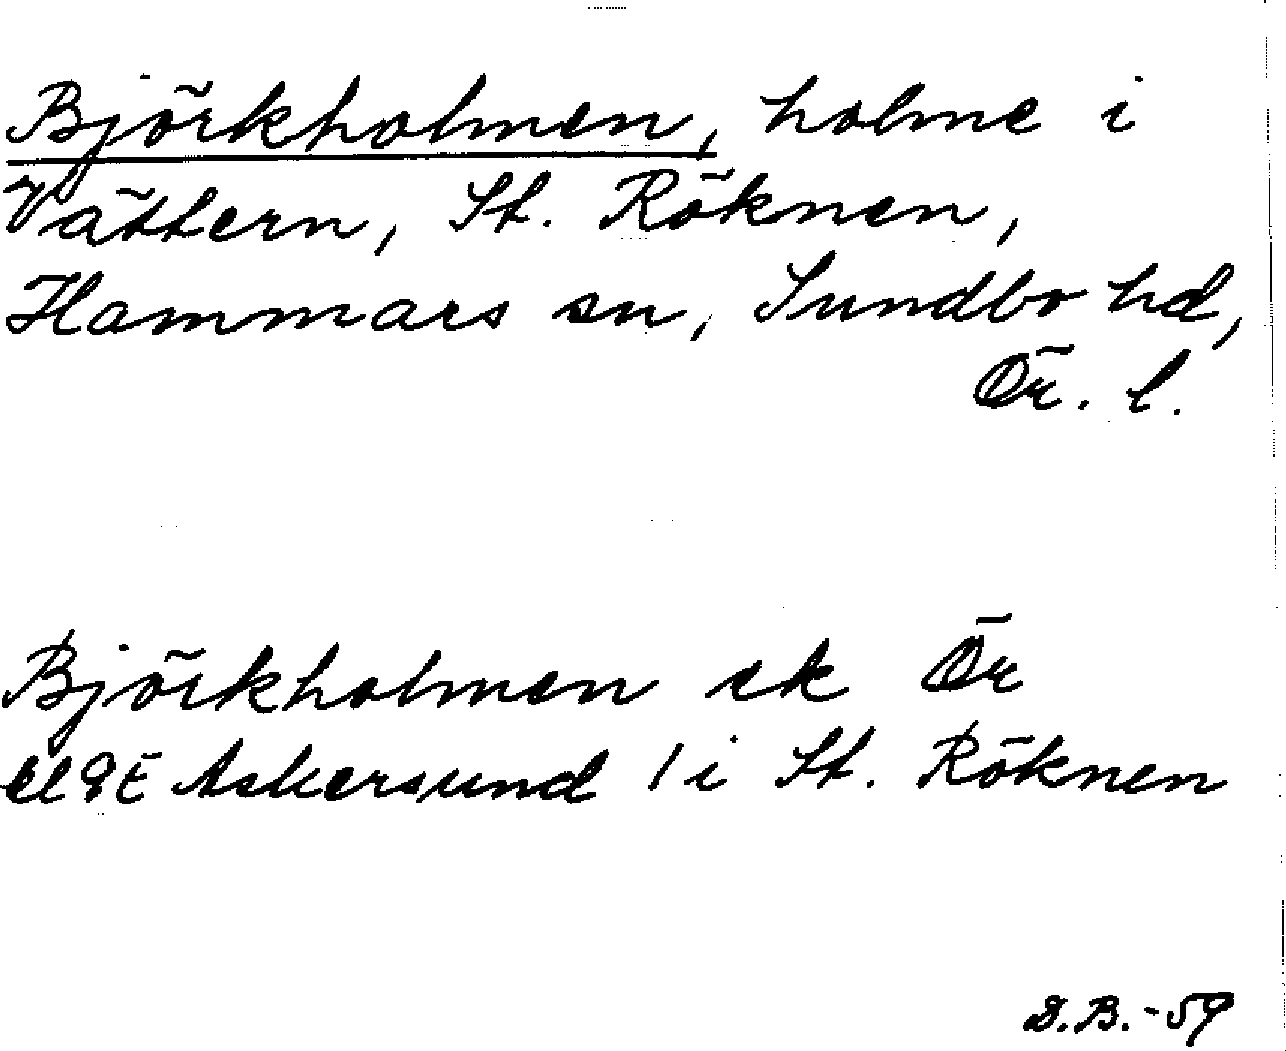 Björkholmen, holme i
Vättern, St. Röknen,
Hammars sn, Sundbo hd,
Ör. l.
Björkholmen ek Ör
Askersund / i St. Röknen
D.B.-59